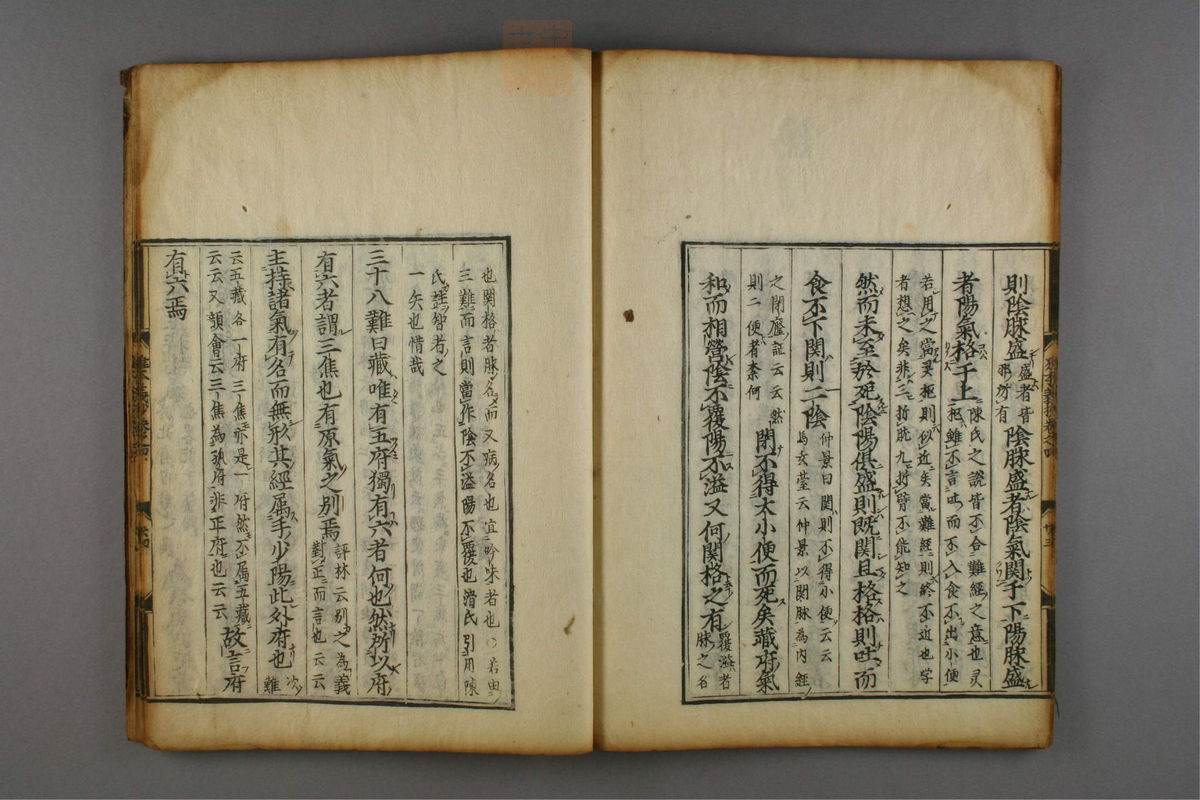 則陰脉盛盛者皆邪所有陰脉盛者陰氣関于下陽脉盛
者陽氣格于上陳氏之說皆不合難經之意也灵
柩雖不言吐而不入食不出小便
若用之當灵柩則似近矣當難經則終不近也学
者想之矣非三折肱九折臂不能知之
然而未至於死陰陽俱盛則既関且格格則吐而
食不下関則二陰仲景曰関則不得小便云云
馬玄臺云仲景以関脉為内經
之閉癃証云云然
則二便者柰何閉不得大小便而死矣藏府氣
和而相營陰不覆陽不溢又何関格之有覆溢者
脉之名
也関格者脉名而又病名也宜吟味者也○若由
三難而言則當作陰不溢陽不覆也滑氏引用陳
氏註智者之
一矢也惜哉
三十八難曰藏唯有五府獨有六者何也然所以府
有六者謂三焦也有原氣之別焉評林云別之為義
對正而言也云云
主持諸氣有名而無形其經属手少陽此外府也次
難
云五藏各一府三焦亦是一府然不属五藏
云云又類會云三焦為孤府非正府也云云故言府
有六焉